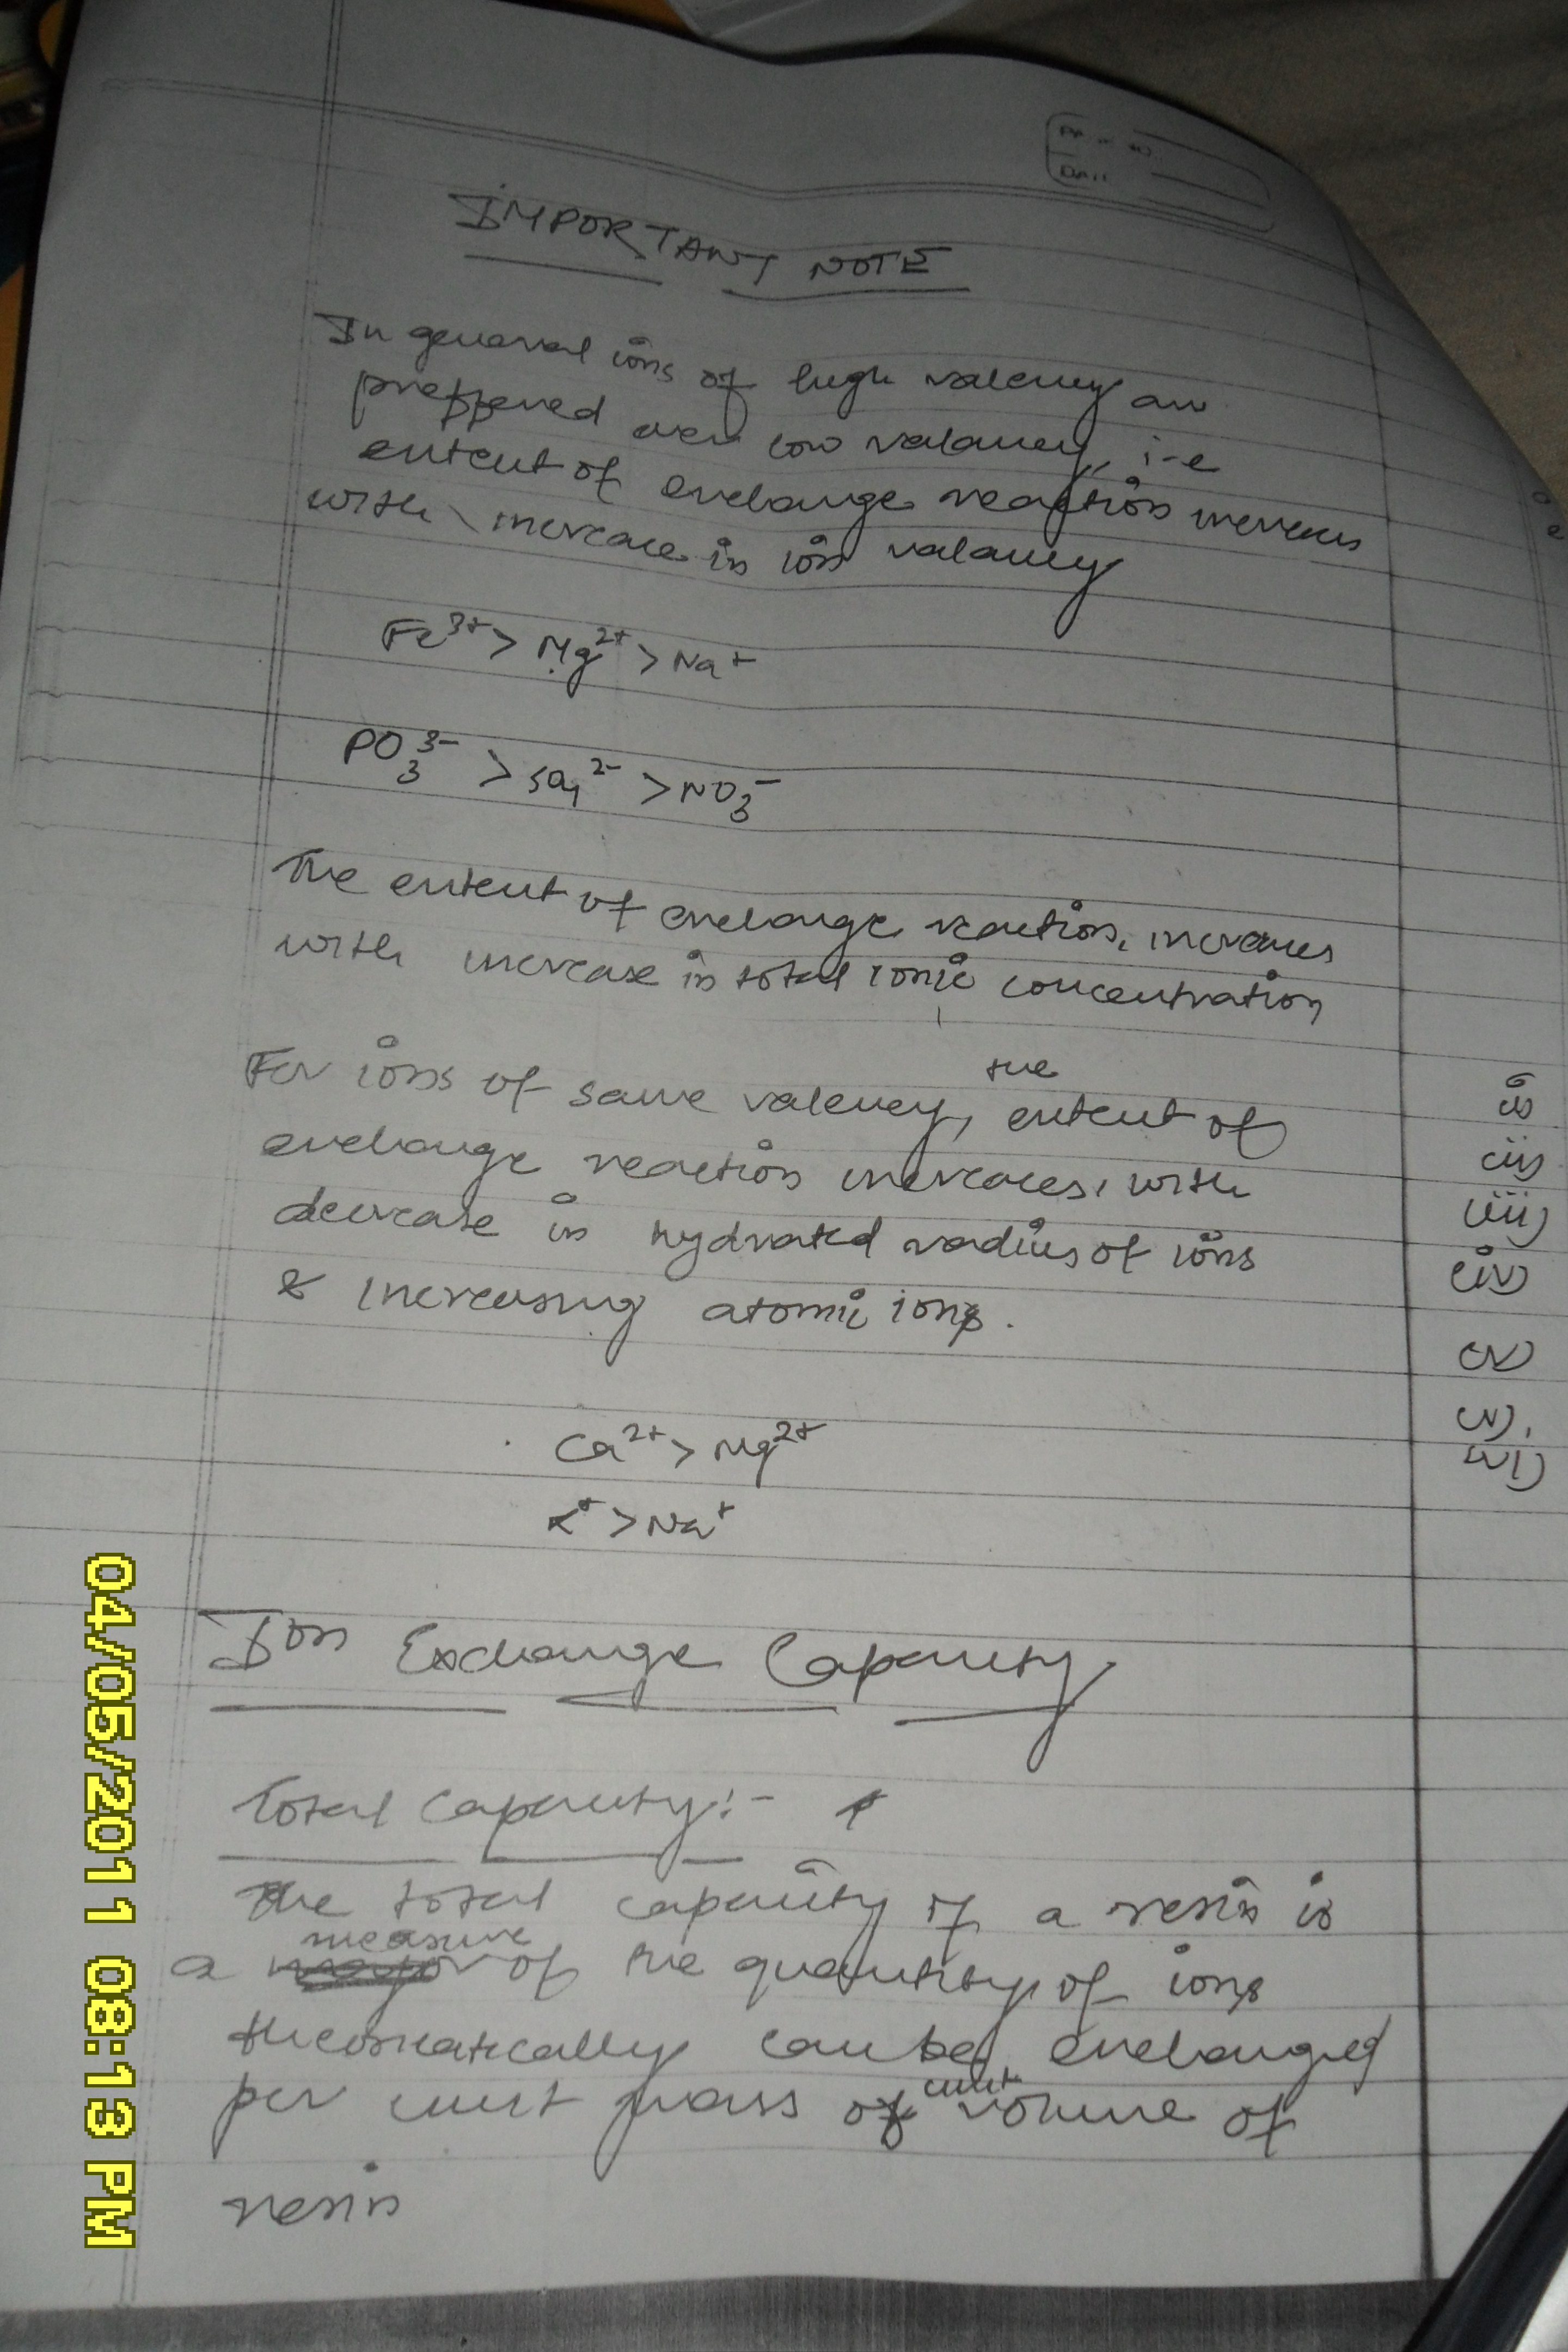 IMPORTANT NOTE
In general ions of high valency are
preffered over low valancy, i-e
extent of exchange reaction increases
with increase in ion valancy
Fe³⁺ > Mg²⁺ > Na⁺
PO₃³⁻ > SO₄²⁻ > NO₃⁻
The extent of exchange reaction, increases
with increase in total ionic concentration
the
For ions of same valency, extent of
exchange reaction increases, with
decrease in hydrated radius of ions
& increasing atomic ions.
Ca²⁺ > Mg²⁺
K⁺ > Na⁺
Ion Exchange Capacity
Total Capacity:-
The total capacity of a resin is
measure
a of the quantity of ions
theoreatically can be exchanged
unit
per unit mass or volume of
resin
(i)
(ii)
(iii)
(iv)
(v)
(v).
(vi)
04/05/2011 08:13 PM